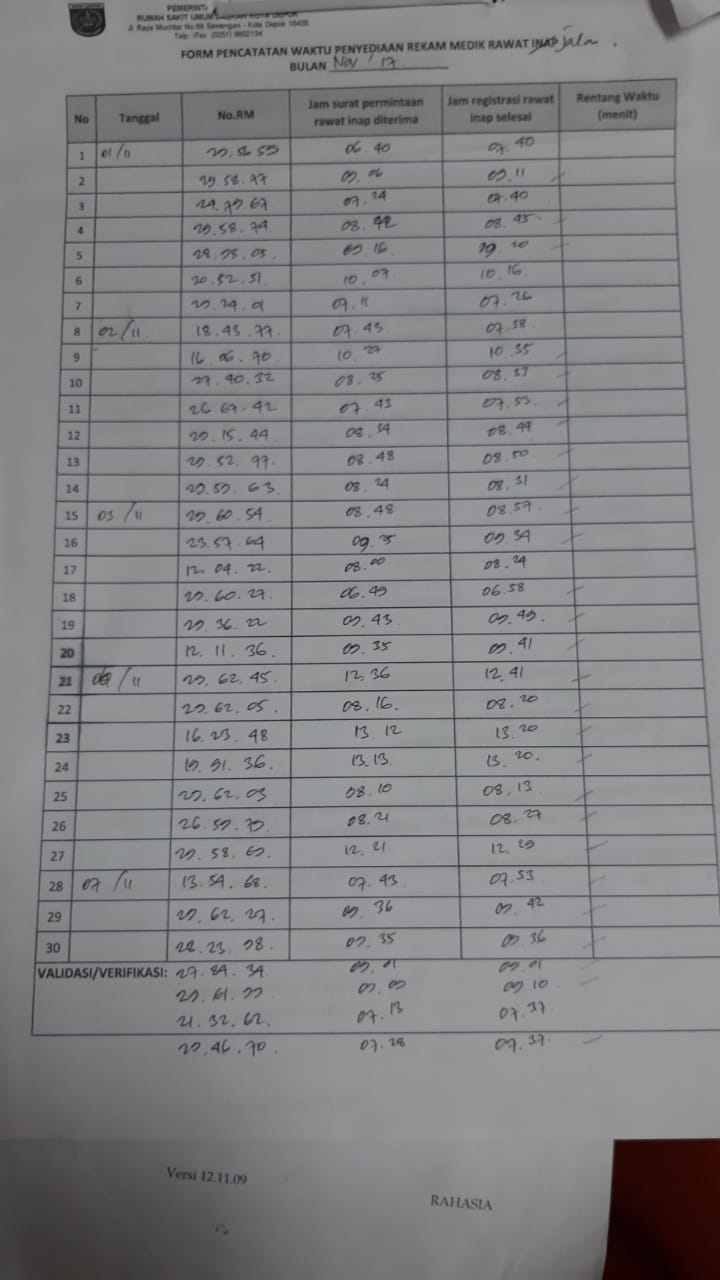 PEMERINTA
RUMAH SAKIT UMUM DAERAH KOTA DEPOK
Jl. Raya Muchtar No.99 Sawangan - Kota Depok 16435
Telp. /Fax. (0251) 8602134
FORM PENCATATAN WAKTU PENYEDIAAN REKAM MEDIK RAWAT INAP jala
BULAN Nov / 17
No Tanggal No.RM Jam surat permintaan rawat inap diterima Jam registrasi rawat inap selesai Rentang Waktu (menit)
1 01/11 06.40 07.40
2 29.58.77 09.06 09.11
3 07.24 07.40
4 29.58.74 08.42 08.45
5 09.16
6 10.07 10.16
7 07.11 07.26
8 02/11 18.43.77. 07.43 07.58
9 16.06.70. 10.27 10.35
10 27.40.32 08.25 08.37
11 26.67.42 07.43 07.53
12 29.15.44 08.34 08.44
13 29.52.97. 08.48 08.50.
14 29.59.63. 08.24 08.31
15 03/11 29.60.54 08.48 08.57.
16 23.57.64 09.25 09.34
17 12.04.22. 08.00 08.24
18 29.60.27. 06.49 06.58
19 29.36.22 09.43 09.49.
20 12.11.36. 09.35 09.41
21 /11 29.62.45. 12.36 12.41
22 29.62.05. 08.16. 08.20
23 16.23.48 13.12 13.20
24 19.91.36. 13.13. 13.20.
25 29.62.03 08.10 08.13
26 26.59.79. 08.21 08.27
27 29.58.69. 12.21 12.29
28 07/11 13.54.68. 07.43 07.53
29 29.62.27. 09.36 09.42
30 09.35 09.36
VALIDASI/VERIFIKASI: 27.84.34 09.01 09.01
29.61.99 09.09 09 10
21.32.62. 07.13 07.37
29.46.70. 07.28 07.37.
Versi 12.11.09
RAHASIA